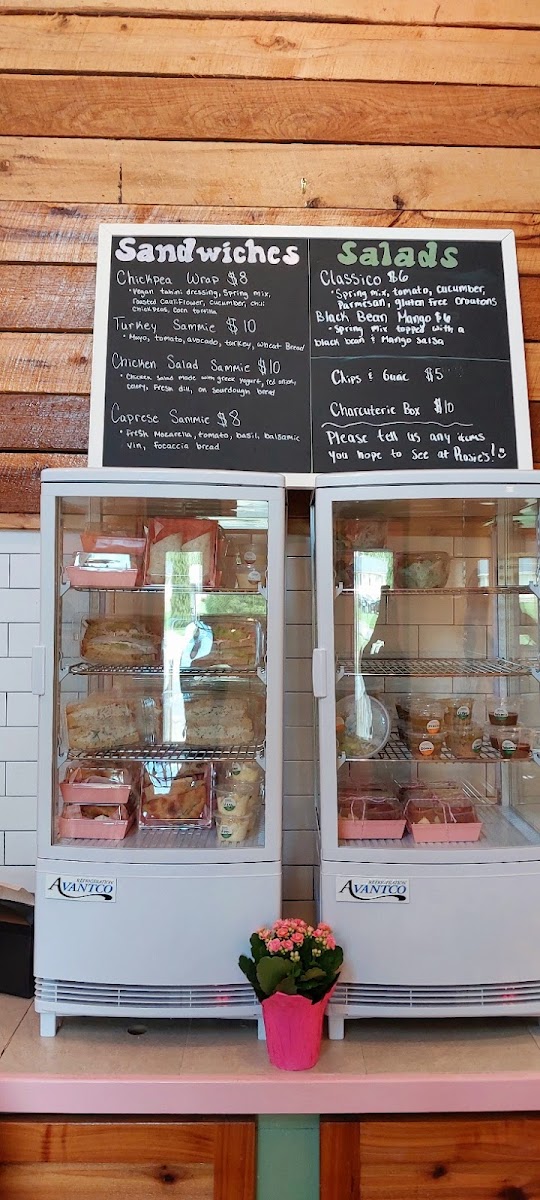 Sandwiches
Chickpea Wrap $8
• Vegan tahini dressing, Spring mix,
roasted Cauliflower, cucumber, chili
Chickpeas, Corn tortilla
Turkey Sammie $10
• Mayo, tomato, avocado, turkey, wheat Bread
Chicken Salad Sammie $10
• Chicken Salad made with greek yogurt, red onion,
celery, Fresh dill, on sourdough bread
Caprese Sammie $8
• Fresh Mozarella, tomato, basil, balsamic
vin, focaccia bread
Salads
Classico $6
• Spring mix, tomato, cucumber,
Parmesan, gluten free croutons
Black Bean Mango $6
• Spring mix topped with a
black bean & Mango salsa
Chips & Guac $5
Charcuterie Box $10
Please tell us any items
you hope to see at Rosie's!
REFRIGERATION
AVANTCO
REFRIGERATION
AVANTCO